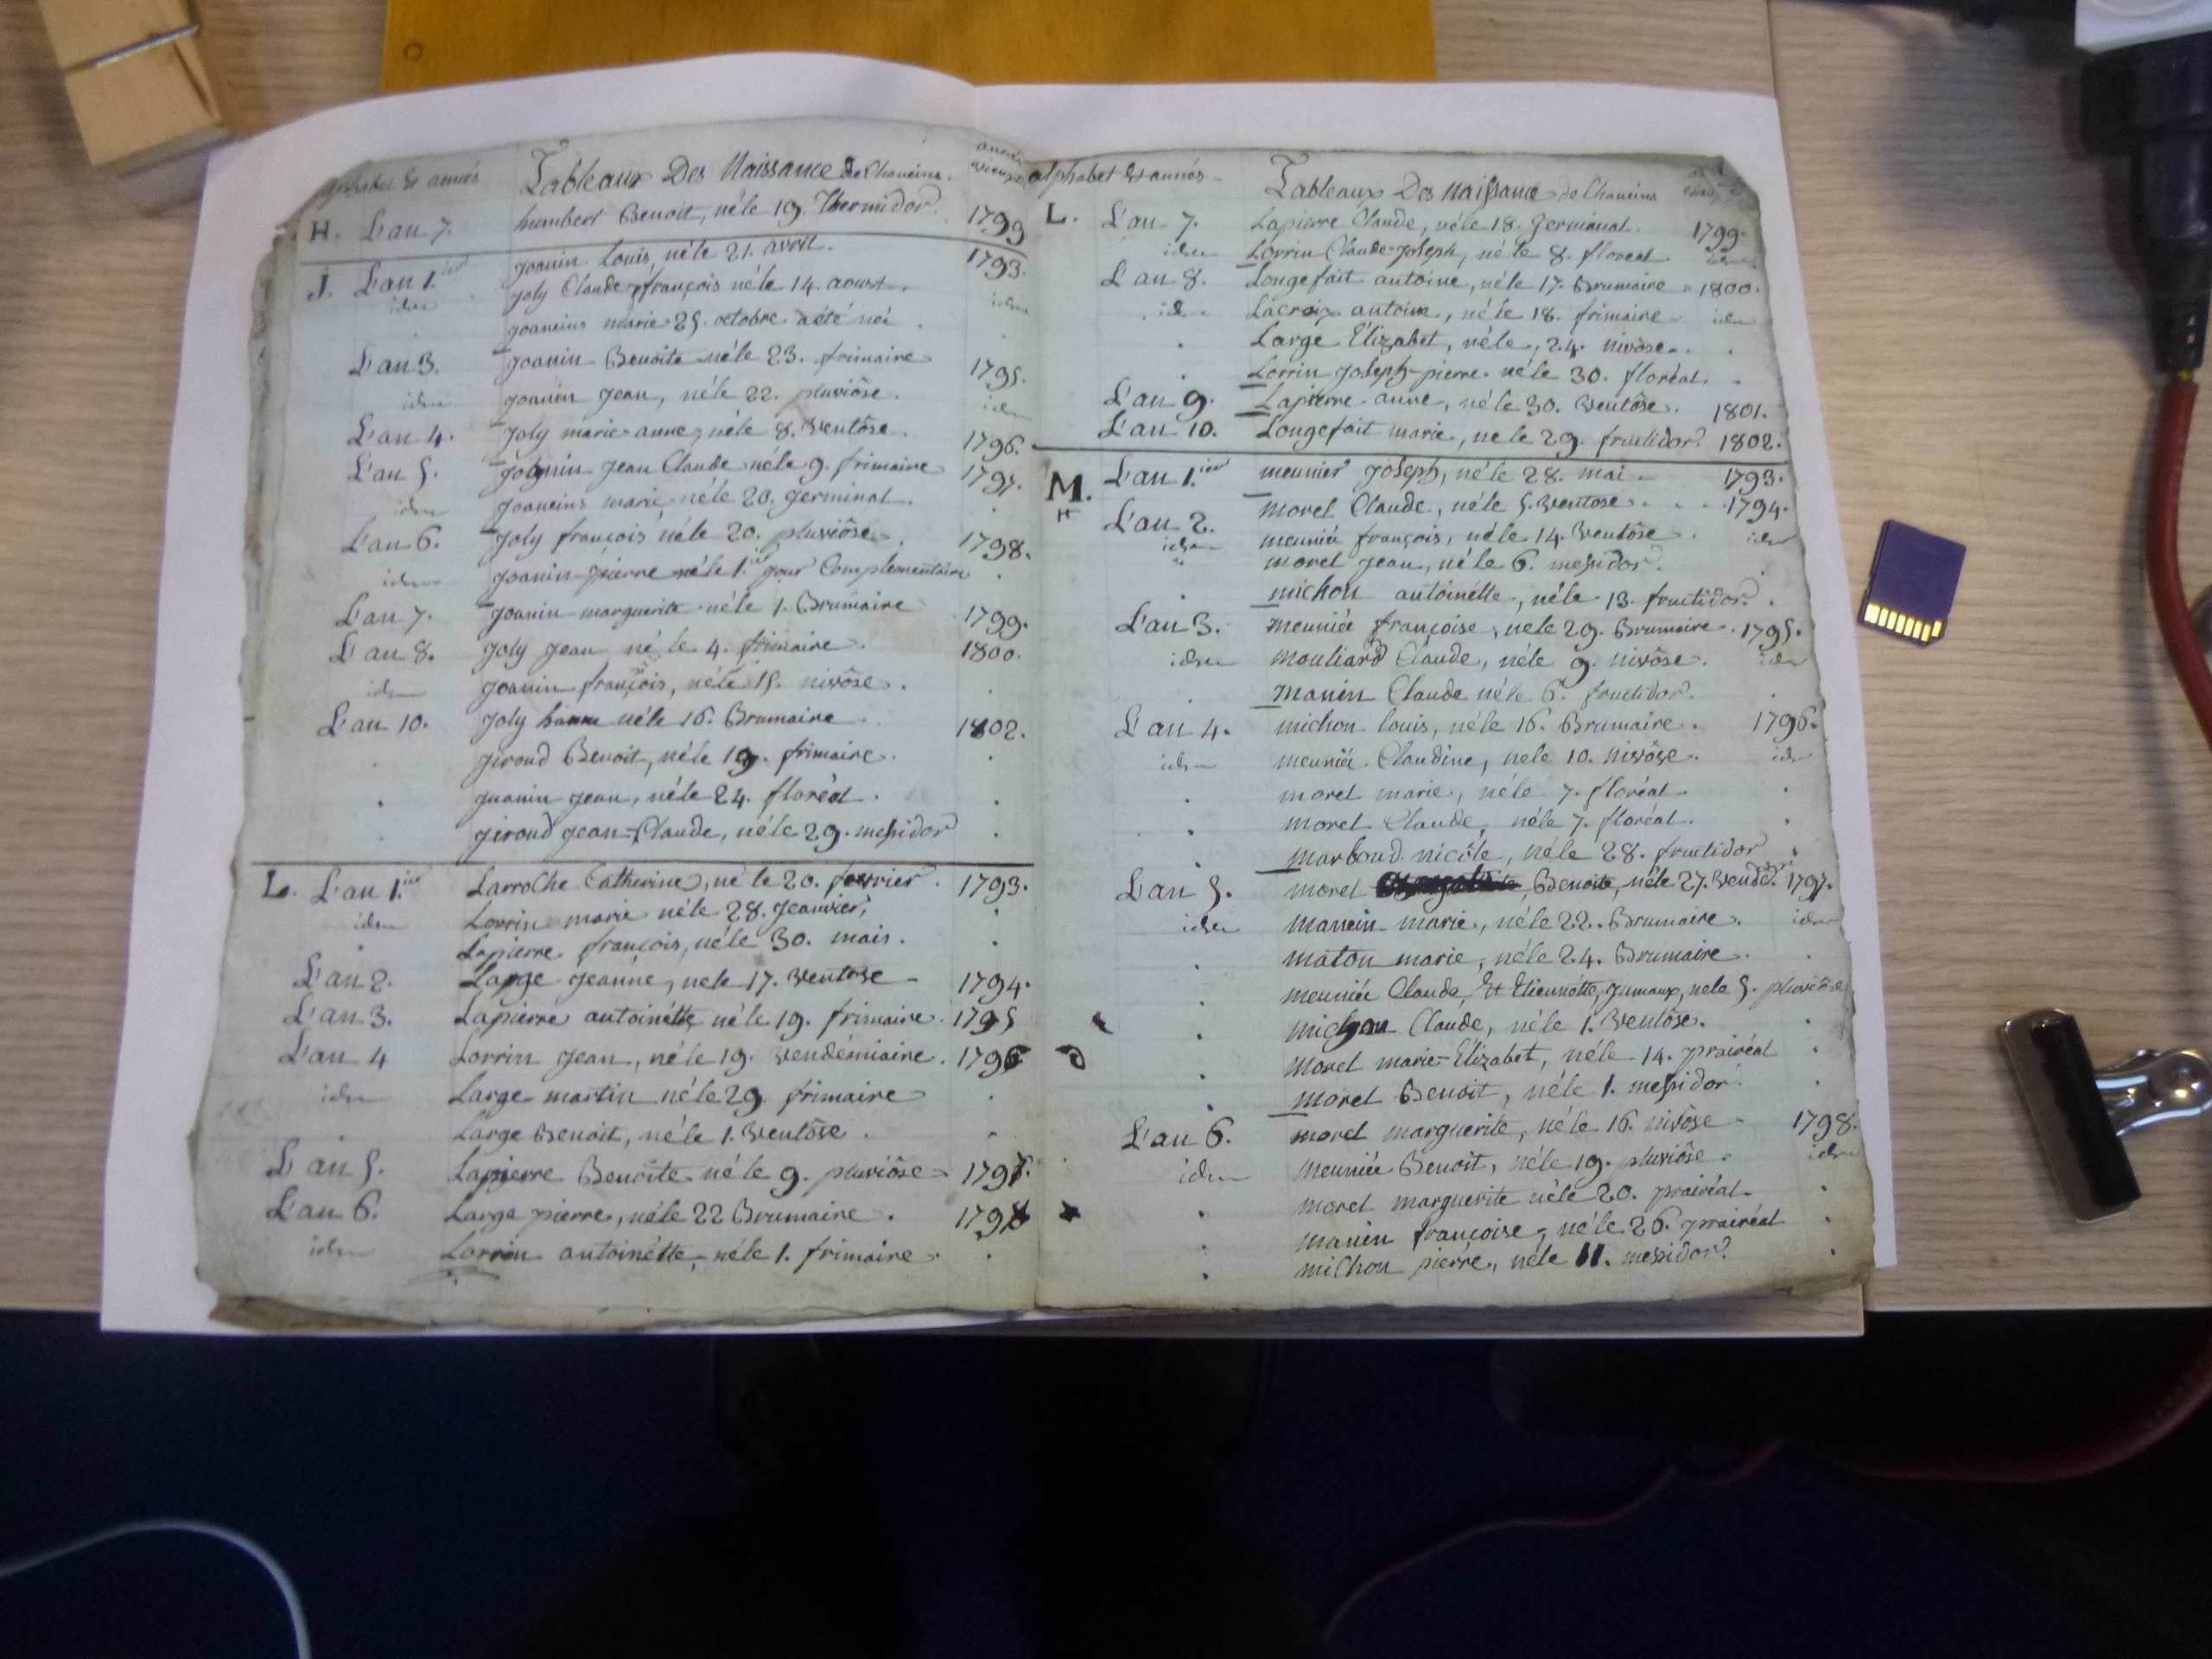 alphabet & année
Tableaux Des Naissance de Chaneins.
année vieux
H. L'an 7. humbert Benoit, né le 19. Thermidor. 1799
J. L'an 1.ier joanin Louis, né le 21. avril. 1793.
idem joly Claude-françois né le 14. aoust. idem
. joaneins marie 25. octobre a été né .
L'an 3. joanin Benoite né le 23. frimaire 1795.
idem joanin jean, né le 22. pluviôse. idem
L'an 4. joly marie-anne, né le 8. ventôse. 1796.
L'an 5. joanin jean Claude né le 9. frimaire 1797.
idem joaneins marie né le 20. germinal. .
L'an 6. joly françois né le 20. pluviôse. 1798.
idem joanin pierre né le 1.ier jour Complémentaire .
L'an 7. joanin marguerite né le 1. Brumaire 1799.
L'an 8. joly jean né le 4. frimaire. 1800.
idem joanin françois, né le 15. nivôse. .
L'an 10. joly né le 16. Brumaire. 1802.
. giroud Benoit, né le 19. frimaire. .
. juanin jean, né le 24. floréal. .
. giroud jean-Claude, né le 29. messidor .
L. L'an 1.ier Larroche Catherine, né le 20. fevrier. 1793.
idem Lorrin marie né le 28. jeanvier, .
. Lapierre françois, né le 30. mais. .
L'an 2. Large jeanne, né le 17. ventose 1794.
L'an 3. Lapierre antoinétte né le 19. frimaire. 1795
L'an 4 Lorrin jean, né le 19. vendémiaire. 1796
idem Large martin né le 29. frimaire .
. Large Benoit, né le 1. ventôse. .
L'an 5. Lapierre Benoite né le 9. pluviôse 1797.
L'an 6. Large pierre, né le 22 Brumaire. 1798
idem Lorrin antoinétte, né le 1. frimaire. .
alphabet & annés
Tableaux Des naissance de Chaneins
L. L'an 7. Lapierre Claude, né le 18. germinal. 1799.
idem Lorrin Claude-joseph, né le 8. floreal. idem
L'an 8. Longefait antoine, né le 17. Brumaire 1800.
idem Lacroix antoine, né le 18. frimaire idem
. Large Élizabet, né le, 24. nivôse. .
. Lorrin joseph-pierre né le 30. floréal. .
L'an 9. Lapierre anne, né le 30. ventôse. 1801.
L'an 10. Longefait marie, né le 29. fructidor. 1802.
M. L'an 1.ier meunier joseph, né le 28. mai 1793.
L'an 2. morel Claude, né le 5. ventose. 1794.
idem meuniée françois, né le 14. ventôse. idem
" morel jean, né le 6. messidor. .
. michon antoinétte, né le 13. fructidor. .
L'an 3. meuniée françoise, né le 29. Brumaire. 1795.
idem mouliard Claude, né le 9. nivôse. idem
. manin Claude né le 6. fructidor. .
L'an 4. michon louis, né le 16. Brumaire. 1796.
idem meuniée Claudine, né le 10. nivôse. idem
. morel marie, né le 7. floréal. .
. morel Claude, né le 7. floréal. .
. marboud nicôle, né le 28. fructidor .
L'an 5. morel Benoite, né le 27. vendé. 1797.
idem manein marie, né le 22. Brumaire. idem
. maton marie, né le 24. Brumaire. .
. meuniée Claude, Et Etiennétte, jumaux, né le 5. pluviôse
. michon Claude, né le 1. ventôse. .
. morel marie-Élizabet, né le 14. prairéal .
. morel Benoit, né le 1. messidor. .
L'an 6. morel marguerite, né le 16. nivôse 1798.
idem meuniée Benoit, né le 19. pluviôse. idem
. morel marguerite né le 20. prairéal. .
. manin françoise, né le 26. prairéal .
. michon pierre, né le 11. messidor. .